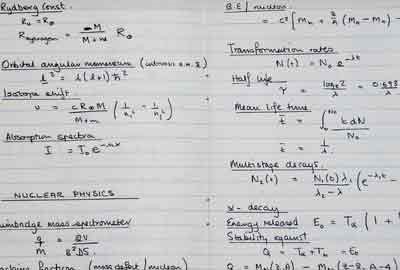 Rydberg Const.
R₀ = R∞
R_Hydrogen = M / M+m R∞
Orbital angular momentum
l² = l(l+1)ħ²
Isotope shift
ν = cR∞M / M+m (1/n₁² − 1/n₂²)
Absorption spectra
I = I₀e
NUCLEAR PHYSICS
mass spectrometer
q/m = 2V / B²DS
fraction (mass defect / nucleon)
B.E / nucleon
= c² [Mn +
Transformation rates
N(t) = N₀ e^-λt
Half life
τ = loge2 / λ = 0.693 / λ
Mean life time
t̄ = ∫ t dN / N₀
t̄ = 1/λ
Multistage decays
N₂(t) = N₁(0) λ₁ / λ₂ − λ₁ (e^-λ₁t −
α - decay
Energy released E₀ = Tα (1 +
Stability against
Q = Tα + Tb = E₀